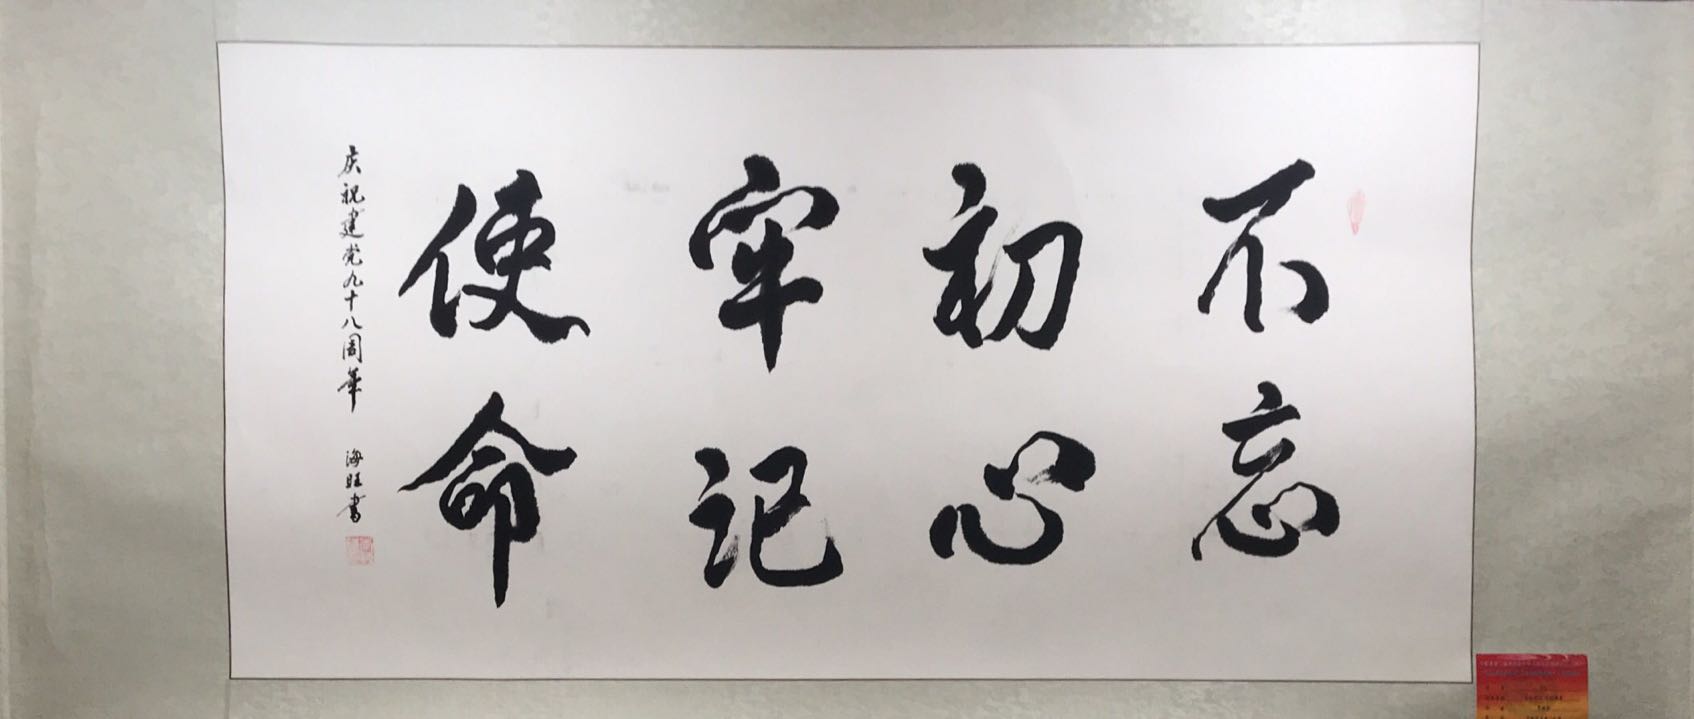 不忘
初心
牢记
使命
庆祝建党九十八周年
海旺书